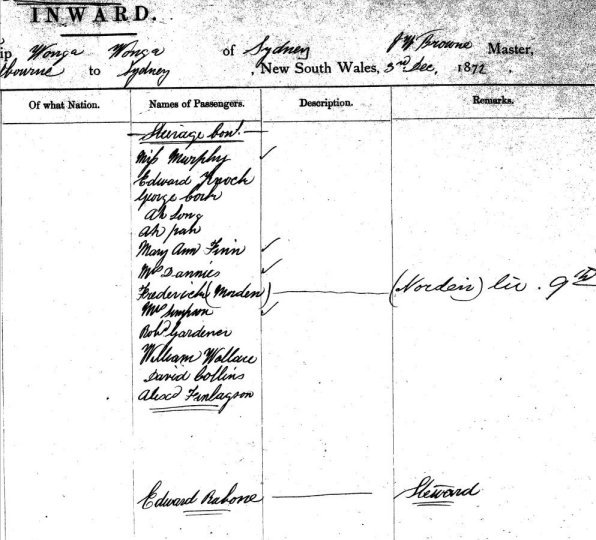 INWARD.
ip Wonga Wonga of Sydney J W Browne Master,
lbourne to Sydney, New South Wales, 3rd Dec, 1872,
Of what Nation. Names of Passengers. Description. Remarks.
Steerage Cont.
Miss Murphy ✓
Edward Knoch
George
Ah Song
Ah pah
Mary Ann Finn ✓
Mrs Dannies ✓
Frederick (Morden) (Norden) 9th
Mrs Simpson ✓
Robt Gardener
William Wallace
David Collins
Alexd Finlagson
Edward Rabone Steward